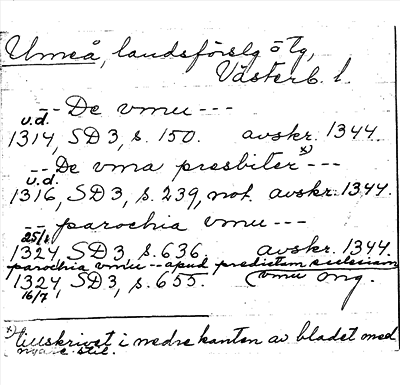 Umeå, landsförslg o tg,
Västerb. l.
-- De vmu ---
u.d.
1314, SD 3, s. 150. avskr. 1344.
-- De vma presbiter x) ---
u.d.
1316, SD 3, s. 239, not. avskr. 1344.
-- parochia vmu ---
25/1
1324, SD 3, s. 636. avskr. 1344.
parochia vmu -- apud predictam ecclesiam
1324, SD 3, s. 655. (vmu orig.
16/7
x) tillskrivet i nedre kanten av bladet med
nyare stil.